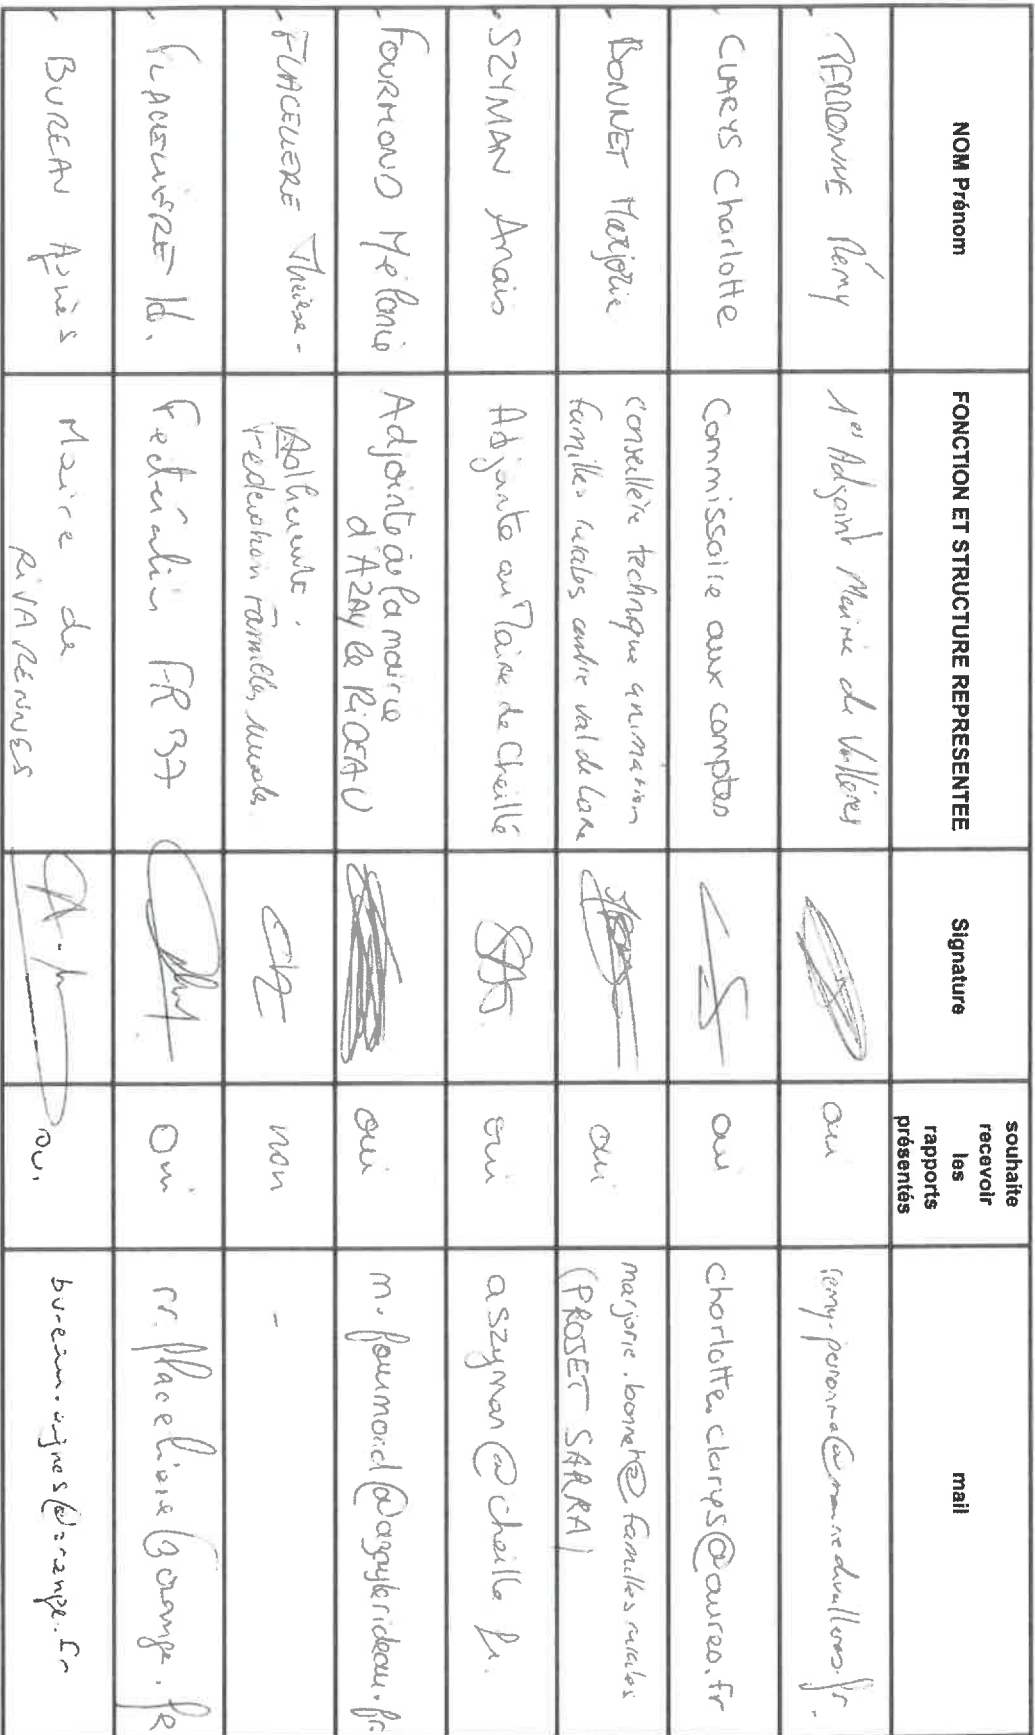 NOM Prénom
FONCTION ET STRUCTURE REPRESENTEE
Signature
souhaite
recevoir
les
rapports
présentés
mail
PERRONNE Rémy
1er Adjoint Mairie de Vallères
oui
CLARYS Charlotte
Commissaire aux comptes
oui
charlotte.clarys@aureo.fr
BONNET Marjorie
conseillère technique animation
familles rurales centre val de Loire
oui
marjorie.bonnet@familles rurales
(PROJET SARRA)
SZYMAN Anais
Adjointe au Maire de Cheillé
oui
aszyman@cheille.fr.
FOURMOND Mélanie
Adjointe de la mairie
d'AZAY le RIDEAU
oui
m.fourmond@azaylerideau.fr
FLACELIERE Thérèse-
Adhérente
Fédération Familles rurales
non
-
FLACELIERE H.
FR 37
oui
BUREAU Agnès
Maire de
RIVARENNES
oui
bureau.agnes@orange.fr